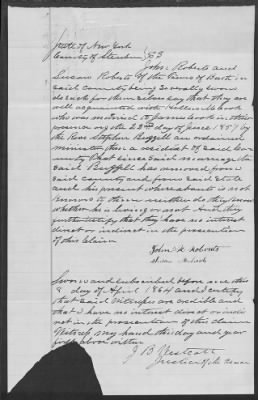 State of New York
County of Steuben } SS
John Roberts and
Susan Roberts of the Town of Bath in
said county being severally sworn
depose for themselves say that they are
well acquainted with
who was married to James Cook in their
presence on the 23rd day of June 1857 by
the Rev Stephen an ordained
minister then a resident of said Co
unty that since said marriage the
said has removed from
said county and from said State
and his present whereabouts is not
known to them neither do they know
whether he is living or not And they
further certify that they have no interest
direct or indirect in the prosecution
of this Claim
John Roberts
Sworn and subscribed before me this
day of April 1864 and I certify
that said witnesses are credible and
that I have no interest direct or indi
rect in the prosecution of this claim
Witness my hand this day and year
first above written
J B Westcott
Justice of the Peace